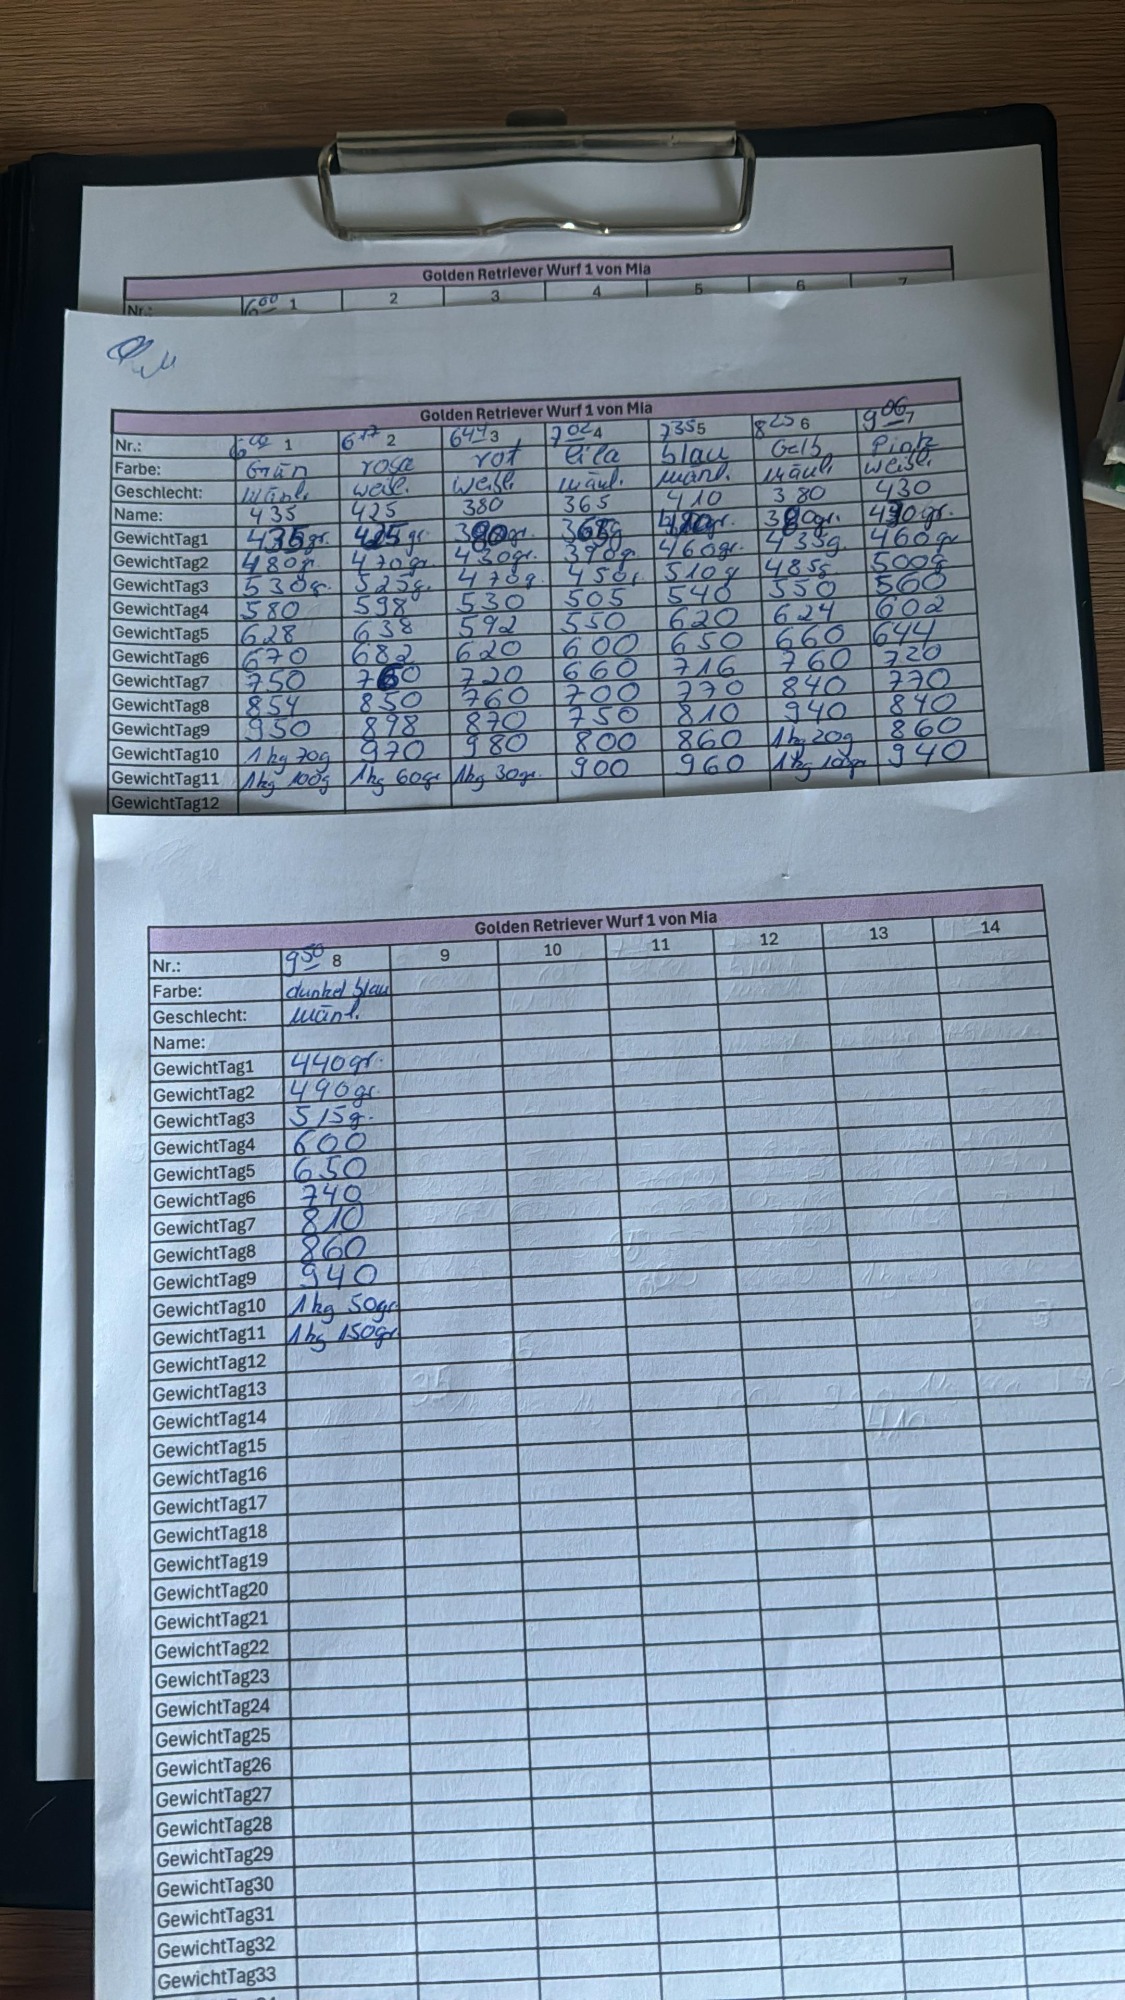 Golden Retriever Wurf 1 von Mia
Nr.: 6⁰⁰ 1 2 3 4 5 6 7
Golden Retriever Wurf 1 von Mia
Nr.: 6⁰⁰ 1 6¹⁷ 2 6⁴⁴ 3 7⁰² 4 7³⁵ 5 8²⁵ 6 9⁰⁶ 7
Farbe: Grün rosa rot lila blau Gelb Pink
Geschlecht: mänl. weibl. weibl. mänl. mänl. mänl. weibl.
Name: 435 425 380 365 410 380 430
GewichtTag1 435gr. 425gr. 380gr. 365g 410gr. 380gr. 430gr.
GewichtTag2 480gr. 470gr. 430gr. 390g. 460gr. 435g. 460gr
GewichtTag3 530gr. 525g. 470g. 450g. 510g 485g 500g
GewichtTag4 580 598 530 505 540 550 560
GewichtTag5 628 638 592 550 620 624 602
GewichtTag6 670 682 620 600 650 660 644
GewichtTag7 750 760 720 660 716 760 720
GewichtTag8 854 850 760 700 770 840 770
GewichtTag9 950 898 870 750 810 940 840
GewichtTag10 1kg 70g 970 980 800 860 1kg 20g 860
GewichtTag11 1kg 100g 1kg 60gr 1kg 30gr. 900 960 1kg 10gr 940
GewichtTag12
Golden Retriever Wurf 1 von Mia
Nr.: 9⁵⁰ 8 9 10 11 12 13 14
Farbe: dunkel blau
Geschlecht: mänl.
Name:
GewichtTag1 440gr.
GewichtTag2 490gr.
GewichtTag3 515g.
GewichtTag4 600
GewichtTag5 650
GewichtTag6 740
GewichtTag7 810
GewichtTag8 860
GewichtTag9 940
GewichtTag10 1kg 50gr
GewichtTag11 1kg 150gr
GewichtTag12
GewichtTag13
GewichtTag14
GewichtTag15
GewichtTag16
GewichtTag17
GewichtTag18
GewichtTag19
GewichtTag20
GewichtTag21
GewichtTag22
GewichtTag23
GewichtTag24
GewichtTag25
GewichtTag26
GewichtTag27
GewichtTag28
GewichtTag29
GewichtTag30
GewichtTag31
GewichtTag32
GewichtTag33